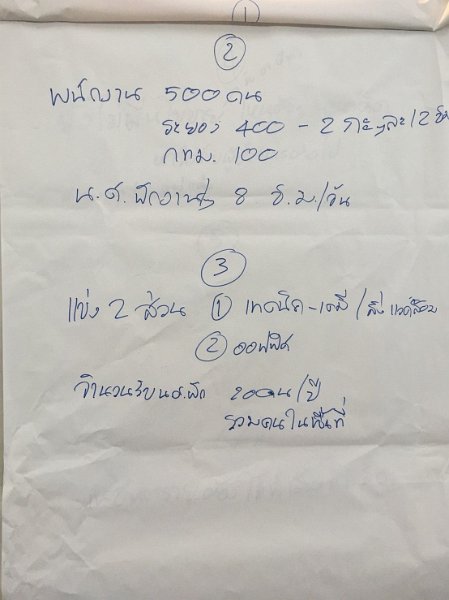 ①
②
พนักงาน 500 คน
ระยอง 400 - 2 กะๆละ 12 ชม
กทม. 100
น.ศ. ฝึกงาน 8 ช.ม./วัน
③
แบ่ง 2 ส่วน ① เทคนิค-เคมี / สิ่งแวดล้อม
② ออฟฟิศ
จำนวนรับนศ.ฝึก 20คน/ปี
รวมคนในพื้นที่